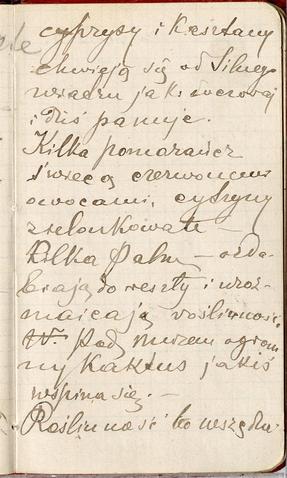 cyprysy i Kasztany
chwieją się od Silnego
wiatru jak wczoraj
i dziś panuje.
Kilka pomarańcz
świecą czerwonemi
owocami, cyprysy
zielonkowate —
Kilka Palm — ozda-
biają do reszty i uroz-
maicają roślinność.
W Pod murem ogrom
ny Kaktus jakiś
wspina się. —
Roślinność to wszędz